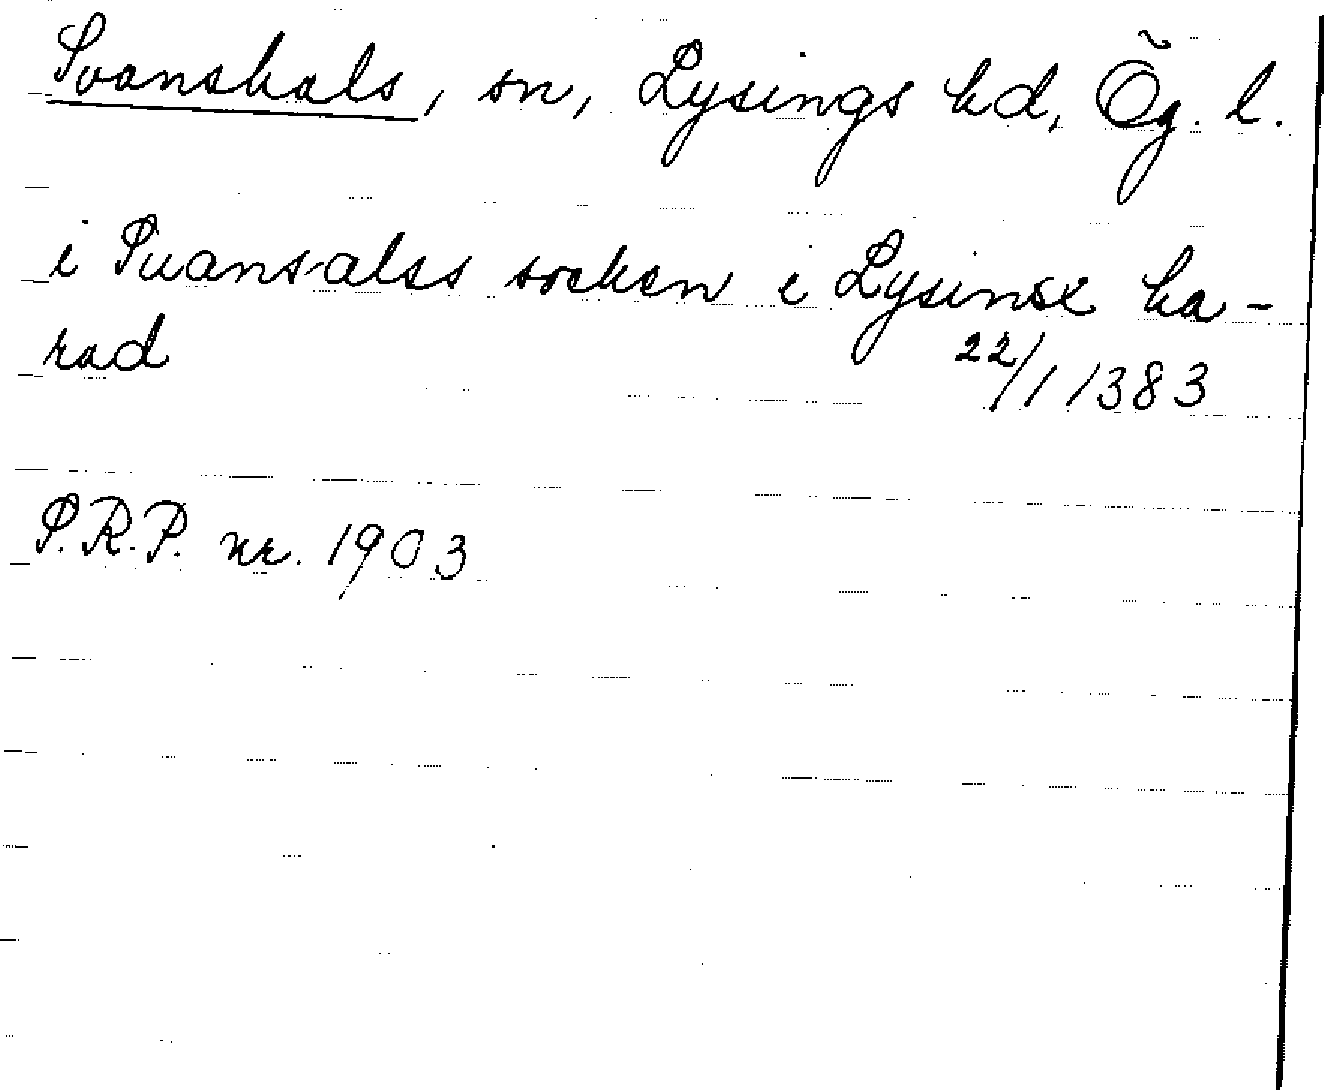 Svanshals, sn, Lysings hd, Ög. l.
i Suansalss socken i Lysinsx ha-
rad 22/1 1383
S.R.P. nr. 1903